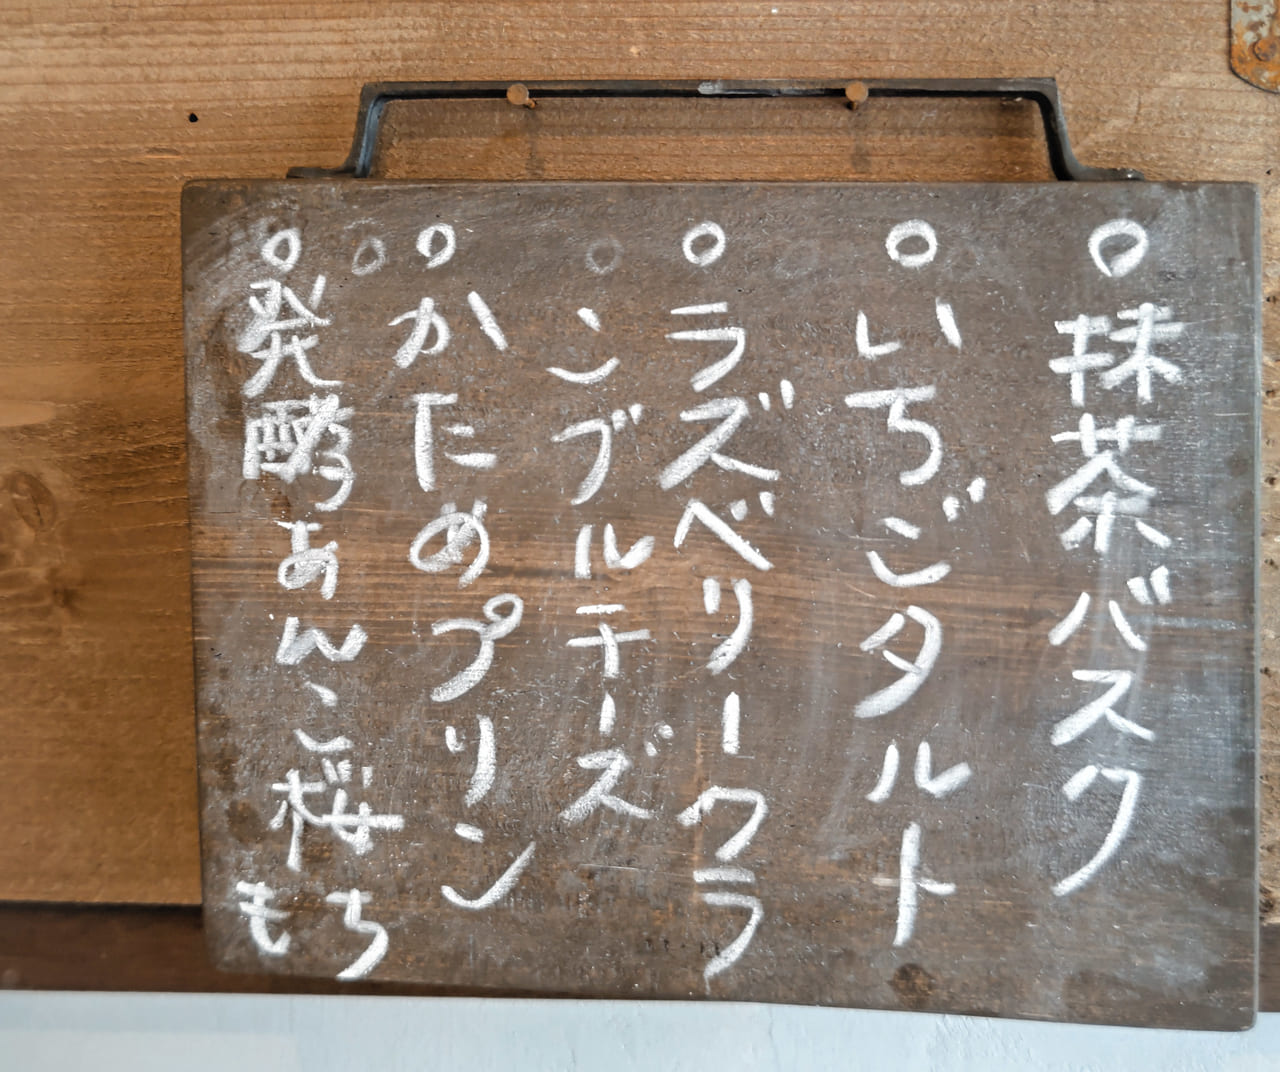 ○抹茶バスク
○いちごタルト
○ラズベリークラ
ンブルチーズ
○かためプリン
○発酵あんこ桜
もち